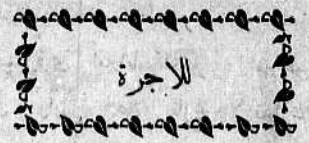 للاجرة